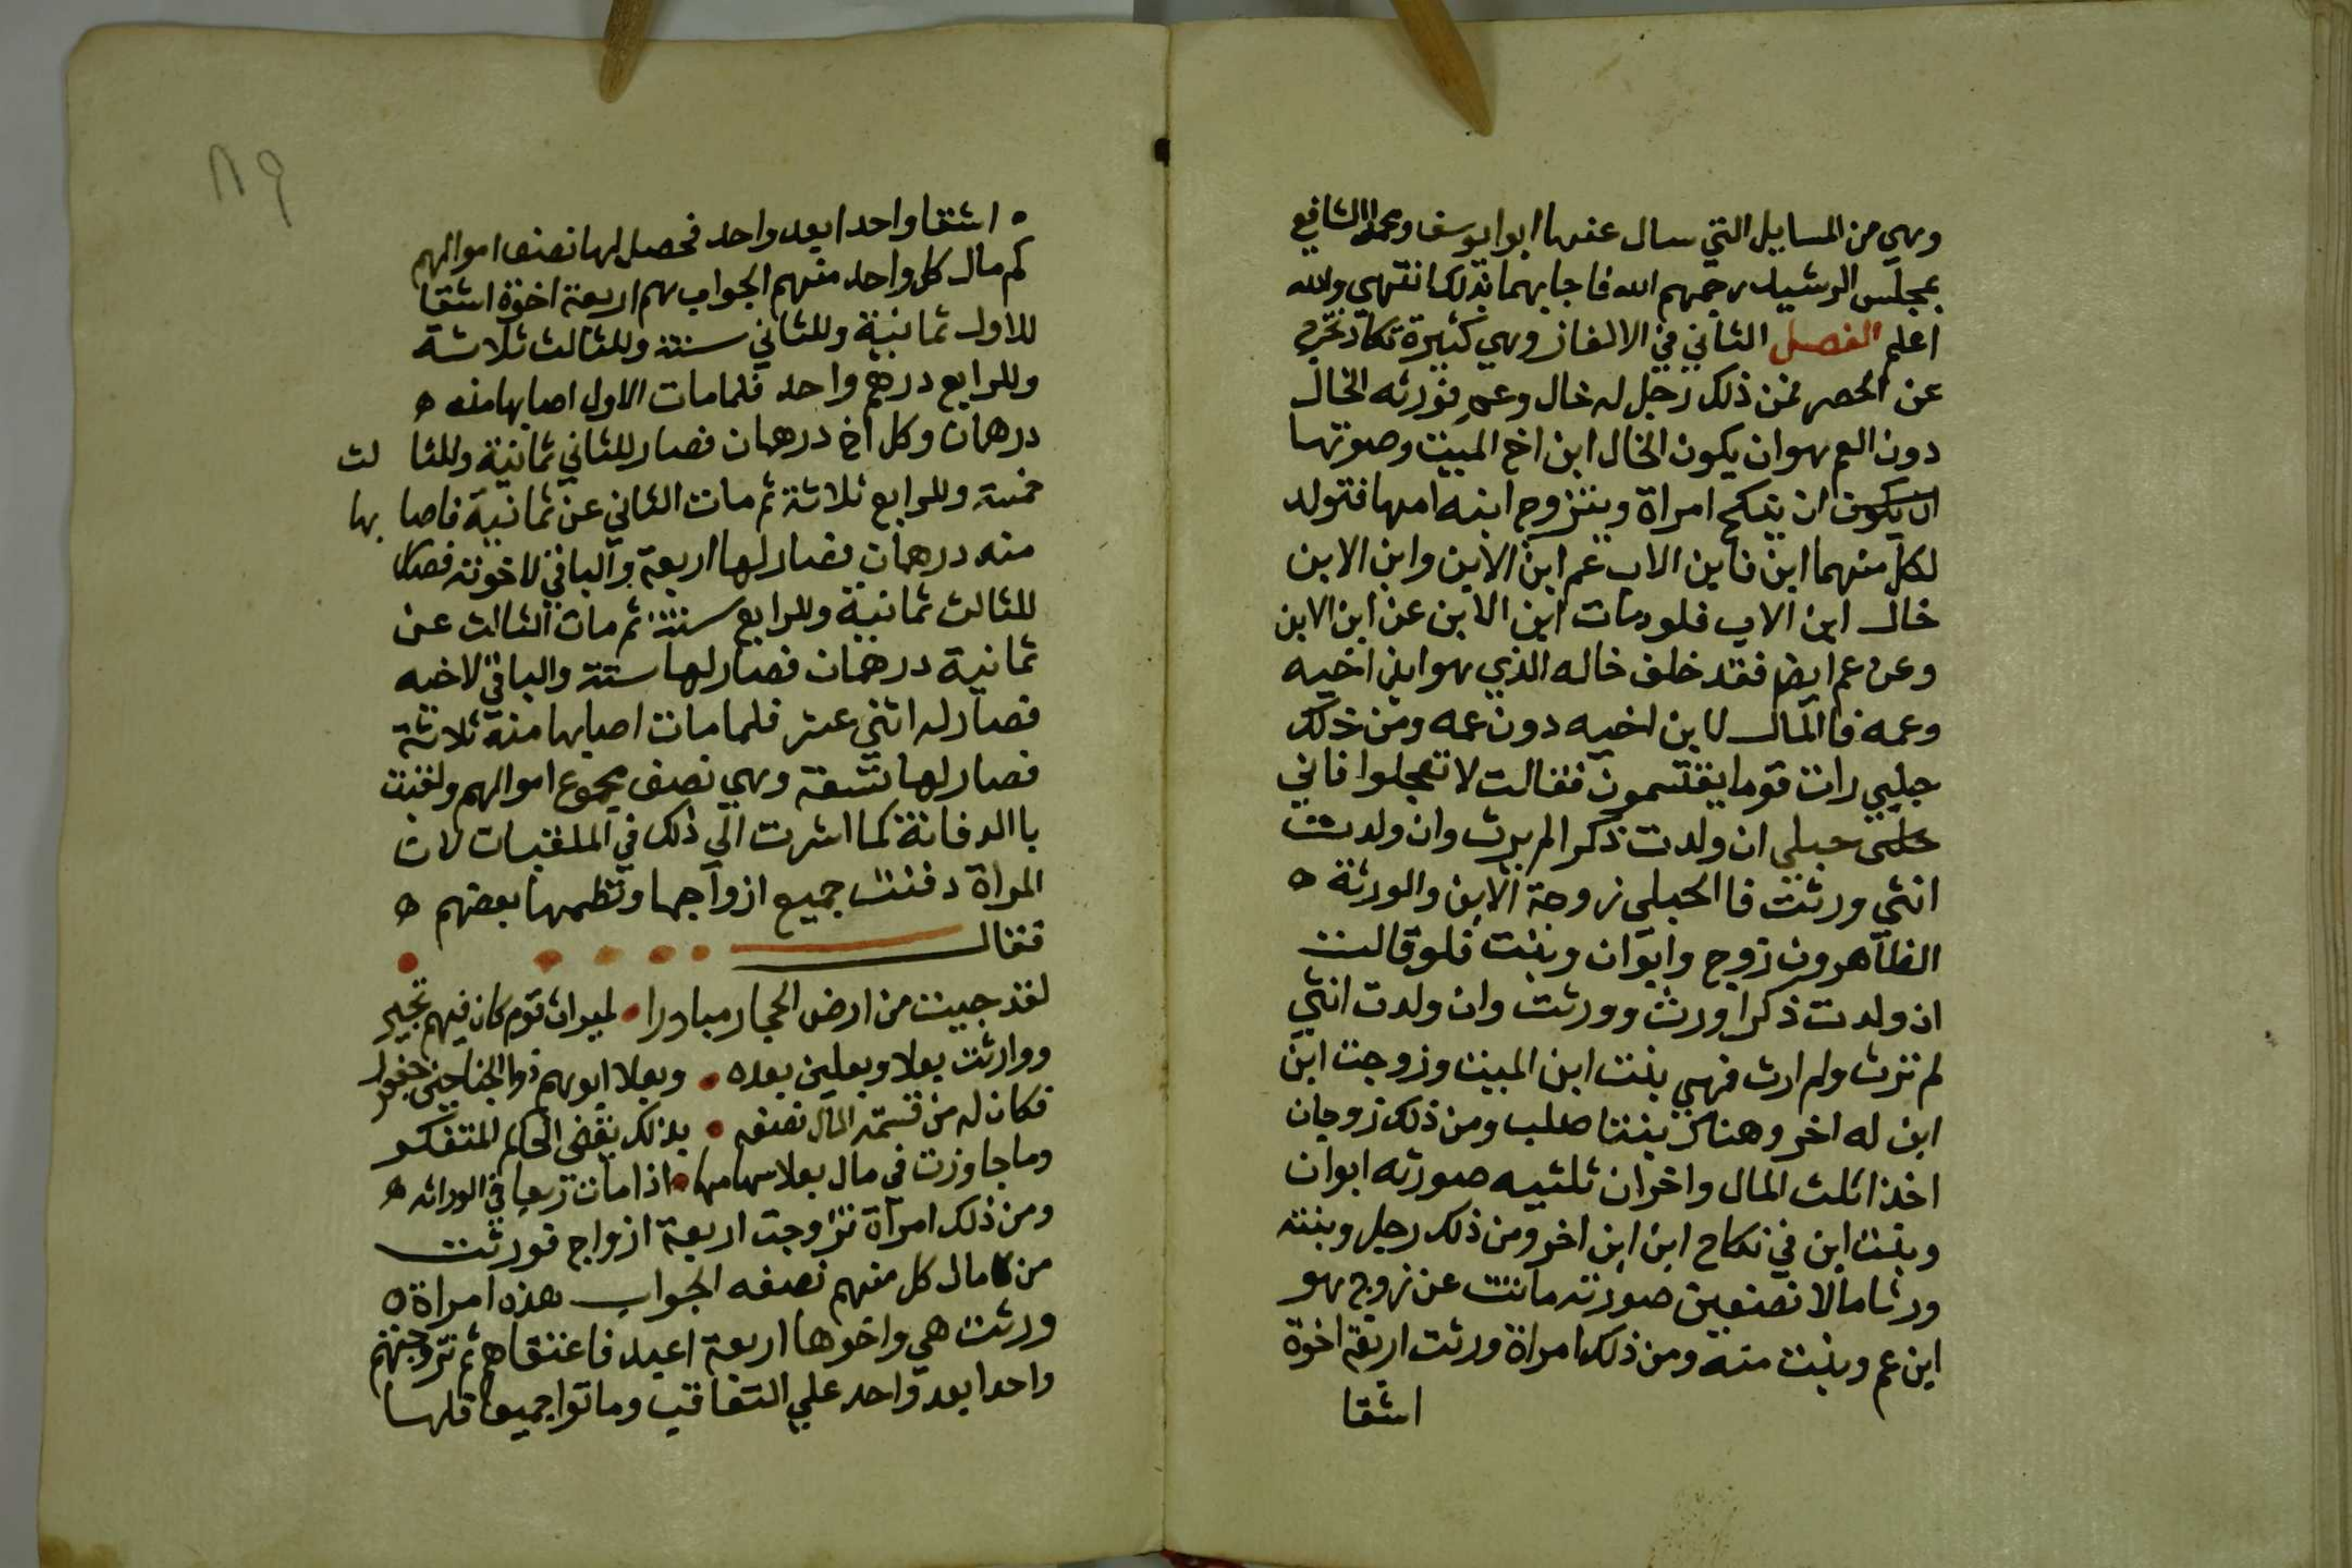 وهي من المسايل التي سال عنها ابوا يوسف ومحمد الشافعي
بمجلس الرشيد رحمهم الله فاجابهما بذلك انتهي والله
اعلم الفصل الثاني في الالغاز وهي كثيرة تكاد تخرج
عن الحصر فمن ذلك رجل له خال وعم فورثه الخال
دون العم هو ان يكون الخال ابن اخ الميت وصورتها
ان ينكح امراة ويتزوج ابنه امها فتولد
لكل منهما ابن فابن الاب عم ابن الابن وابن الابن
خال ابن الاب فلو مات ابن الابن عن ابن الابن
وعن عم ايض فقد خلف خاله الذي هو ابن اخيه
وعمه فا المال لابن اخيه دون عمه ومن ذلك
حبلي رات قوما يقتسمون فقالت لا تعجلوا فاني
حبلي ان ولدت ذكرا لم يرث وان ولدت
انثي ورثت فا الحبلي زوجة الابن والورثة ه
الظاهرون زوج وابوان وبنت فلو قالت
ان ولدت ذكرا ورث وورثت وان ولدت انثي
لم ترث ولم ارث فهي بنت ابن الميت وزوجت ابن
ابن له اخر وهناك بنتا صلب ومن ذلك زوجان
اخذا ثلث المال واخران ثلثيه صورته ابوان
وبنت ابن في نكاح ابن ابن اخر ومن ذلك رجل وبنته
ورثا مالا نصفين صورته ماتت عن زوج هو
ابن عم وبنت منه ومن ذلك امراة ورثت اربعة اخوة
اشقا
ه اشقا واحدا بعد واحد فحصل لها نصف اموالهم
كم مال كل واحد منهم الجواب هم اربعة اخوة اشقا
للاول ثمانية وللثاني ستة وللثالث ثلاثة
وللرابع درهم واحد فلما مات الاول اصابها منه ه
درهمان وكل اخ درهمان فصار للثاني ثمانية وللثا لث
خمسة وللرابع ثلاثة ثم مات الثاني عن ثمانية فاصا بها
منه درهمان فصار لها اربعة والباقي لاخوته فصار
للثالث ثمانية وللرابع ستة ثم مات الثالث عن
ثمانية درهمان فصار لها ستة والباقي لاخيه
فصار له اثني عشر فلما مات اصابها منه ثلاثة
فصار لها تسعة وهي نصف مجموع اموالهم ولقبت
با الدفانة كما اشرت الي ذلك في الملقبات لان
المراة دفنت جميع ازواجها ونظمها بعضهم ه
فقال
لقد جيت من ارض الحجار مبادرا • لميراث قوم كان فيهم تجبر
ووارثت بعلا وبعلين بعده • وبعلا ابوهم ذوا الجناحين جعفر
فكان له من قسمة المال نصفه • بذلك يقضي الحاكم المتفكر
وما جاوزت في مال بعلا سهامها • اذا مات ربعا في الوراثه ه
ومن ذلك امراة تزوجت اربعة ازواج فورثت
من مال كل منهم نصفه الجواب هذه امراة ه
ورثت هي واخوها اربعة اعبد فاعتقاهم ثم تزوجتهم
واحدا بعد واحد علي التعاقب وماتوا جميعا فلها